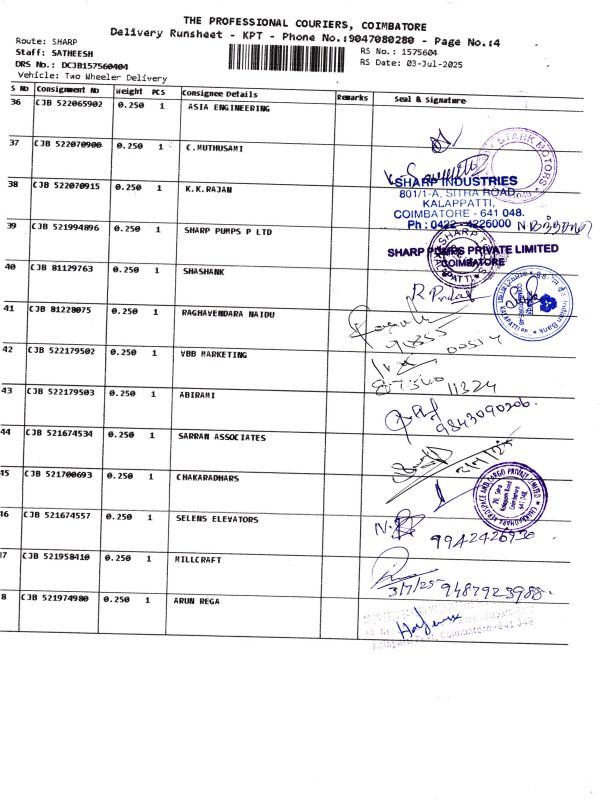 THE PROFESSIONAL COURIERS, COIMBATORE
Delivery Runsheet - KPT - Phone No.:9047080280 - Page No.:4
Route: SHARP
Staff: SATHEESH
DRS No.: DCJB157560404
Vehicle: Two Wheeler Delivery
RS No.: 1575604
RS Date: 03-Jul-2025
S No Consignment No Weight PCS Consignee Details Remarks Seal & Signature
36 CJB 522065902 0.250 1 ASIA ENGINEERING
37 CJB 522070900 0.250 1 C.MUTHUSAMI
STARK MOTORS
38 CJB 522070915 0.250 1 K.K.RAJAN
SHARP INDUSTRIES
801/1-A, SITRA ROAD,
KALAPPATTI,
COIMBATORE - 641 048.
Ph : 0422 - 4226000
39 CJB 521994896 0.250 1 SHARP PUMPS P LTD
SHARP PUMPS PRIVATE LIMITED
COIMBATORE
40 CJB 81129763 0.250 1 SHASHANK
Indian Bank
41 CJB 81228075 0.250 1 RAGHAVENDARA NAIDU
00514
42 CJB 522179502 0.250 1 VBB MARKETING
11324
43 CJB 522179503 0.250 1 ABIRAMI
9843090206.
44 CJB 521674534 0.250 1 SARRAN ASSOCIATES
45 CJB 521700693 0.250 1 CHAKARADHARS
46 CJB 521674557 0.250 1 SELENS ELEVATORS
9942426930
17 CJB 521958410 0.250 1 MILLCRAFT
3/7/25 9487923988.
8 CJB 521974980 0.250 1 ARUN REGA
Coimbatore - 641 048